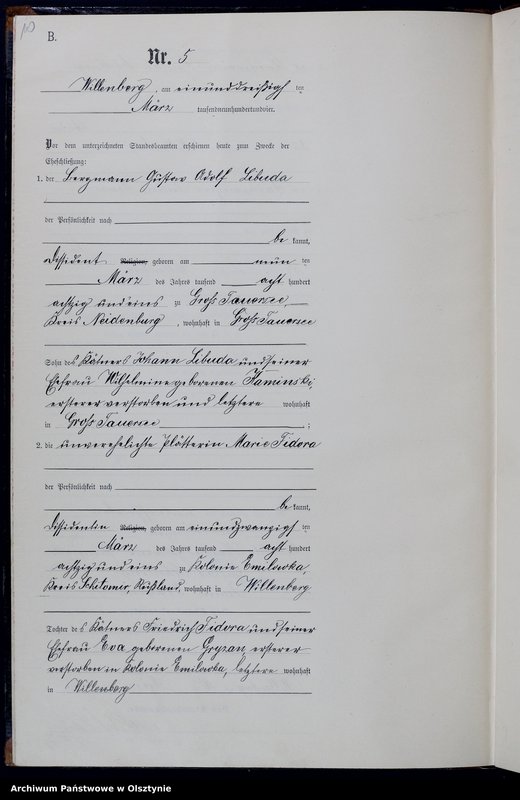 B.
Nr. 5
Willenberg, am einunddreißigsten
März tausendneunhundertundvier.
Vor dem unterzeichneten Standesbeamten erschienen heute zum Zwecke der
Eheschließung:
1. der Bergmann Gustav Adolf Libuda
der Persönlichkeit nach
be kannt,
Dissident Religion, geboren am neun ten
März des Jahres tausend acht hundert
achtzig und eins zu Groß Tauersee,
Kreis Neidenburg, wohnhaft in Groß Tauersee
Sohn des Kätners Johann Libuda und seiner
Ehefrau Wilhelmine geborenen Kaminski,
ersterer verstorben und letztere wohnhaft
in Groß Tauersee ;
2. die unverehelichte Plätterin Marie Fidora
der Persönlichkeit nach
be kannt,
Dissidentin Religion, geboren am einundzwanzigsten
März des Jahres tausend acht hundert
achtzig und eins zu Kolonie Emilowka,
Kreis Schitomir, Rußland, wohnhaft in Willenberg
Tochter des Kätners Friedrich Fidora und seiner
Ehefrau Eva geborenen Gryzan, ersterer
verstorben in Kolonie Emilowka, letztere wohnhaft
in Willenberg
Archiwum Państwowe w Olsztynie